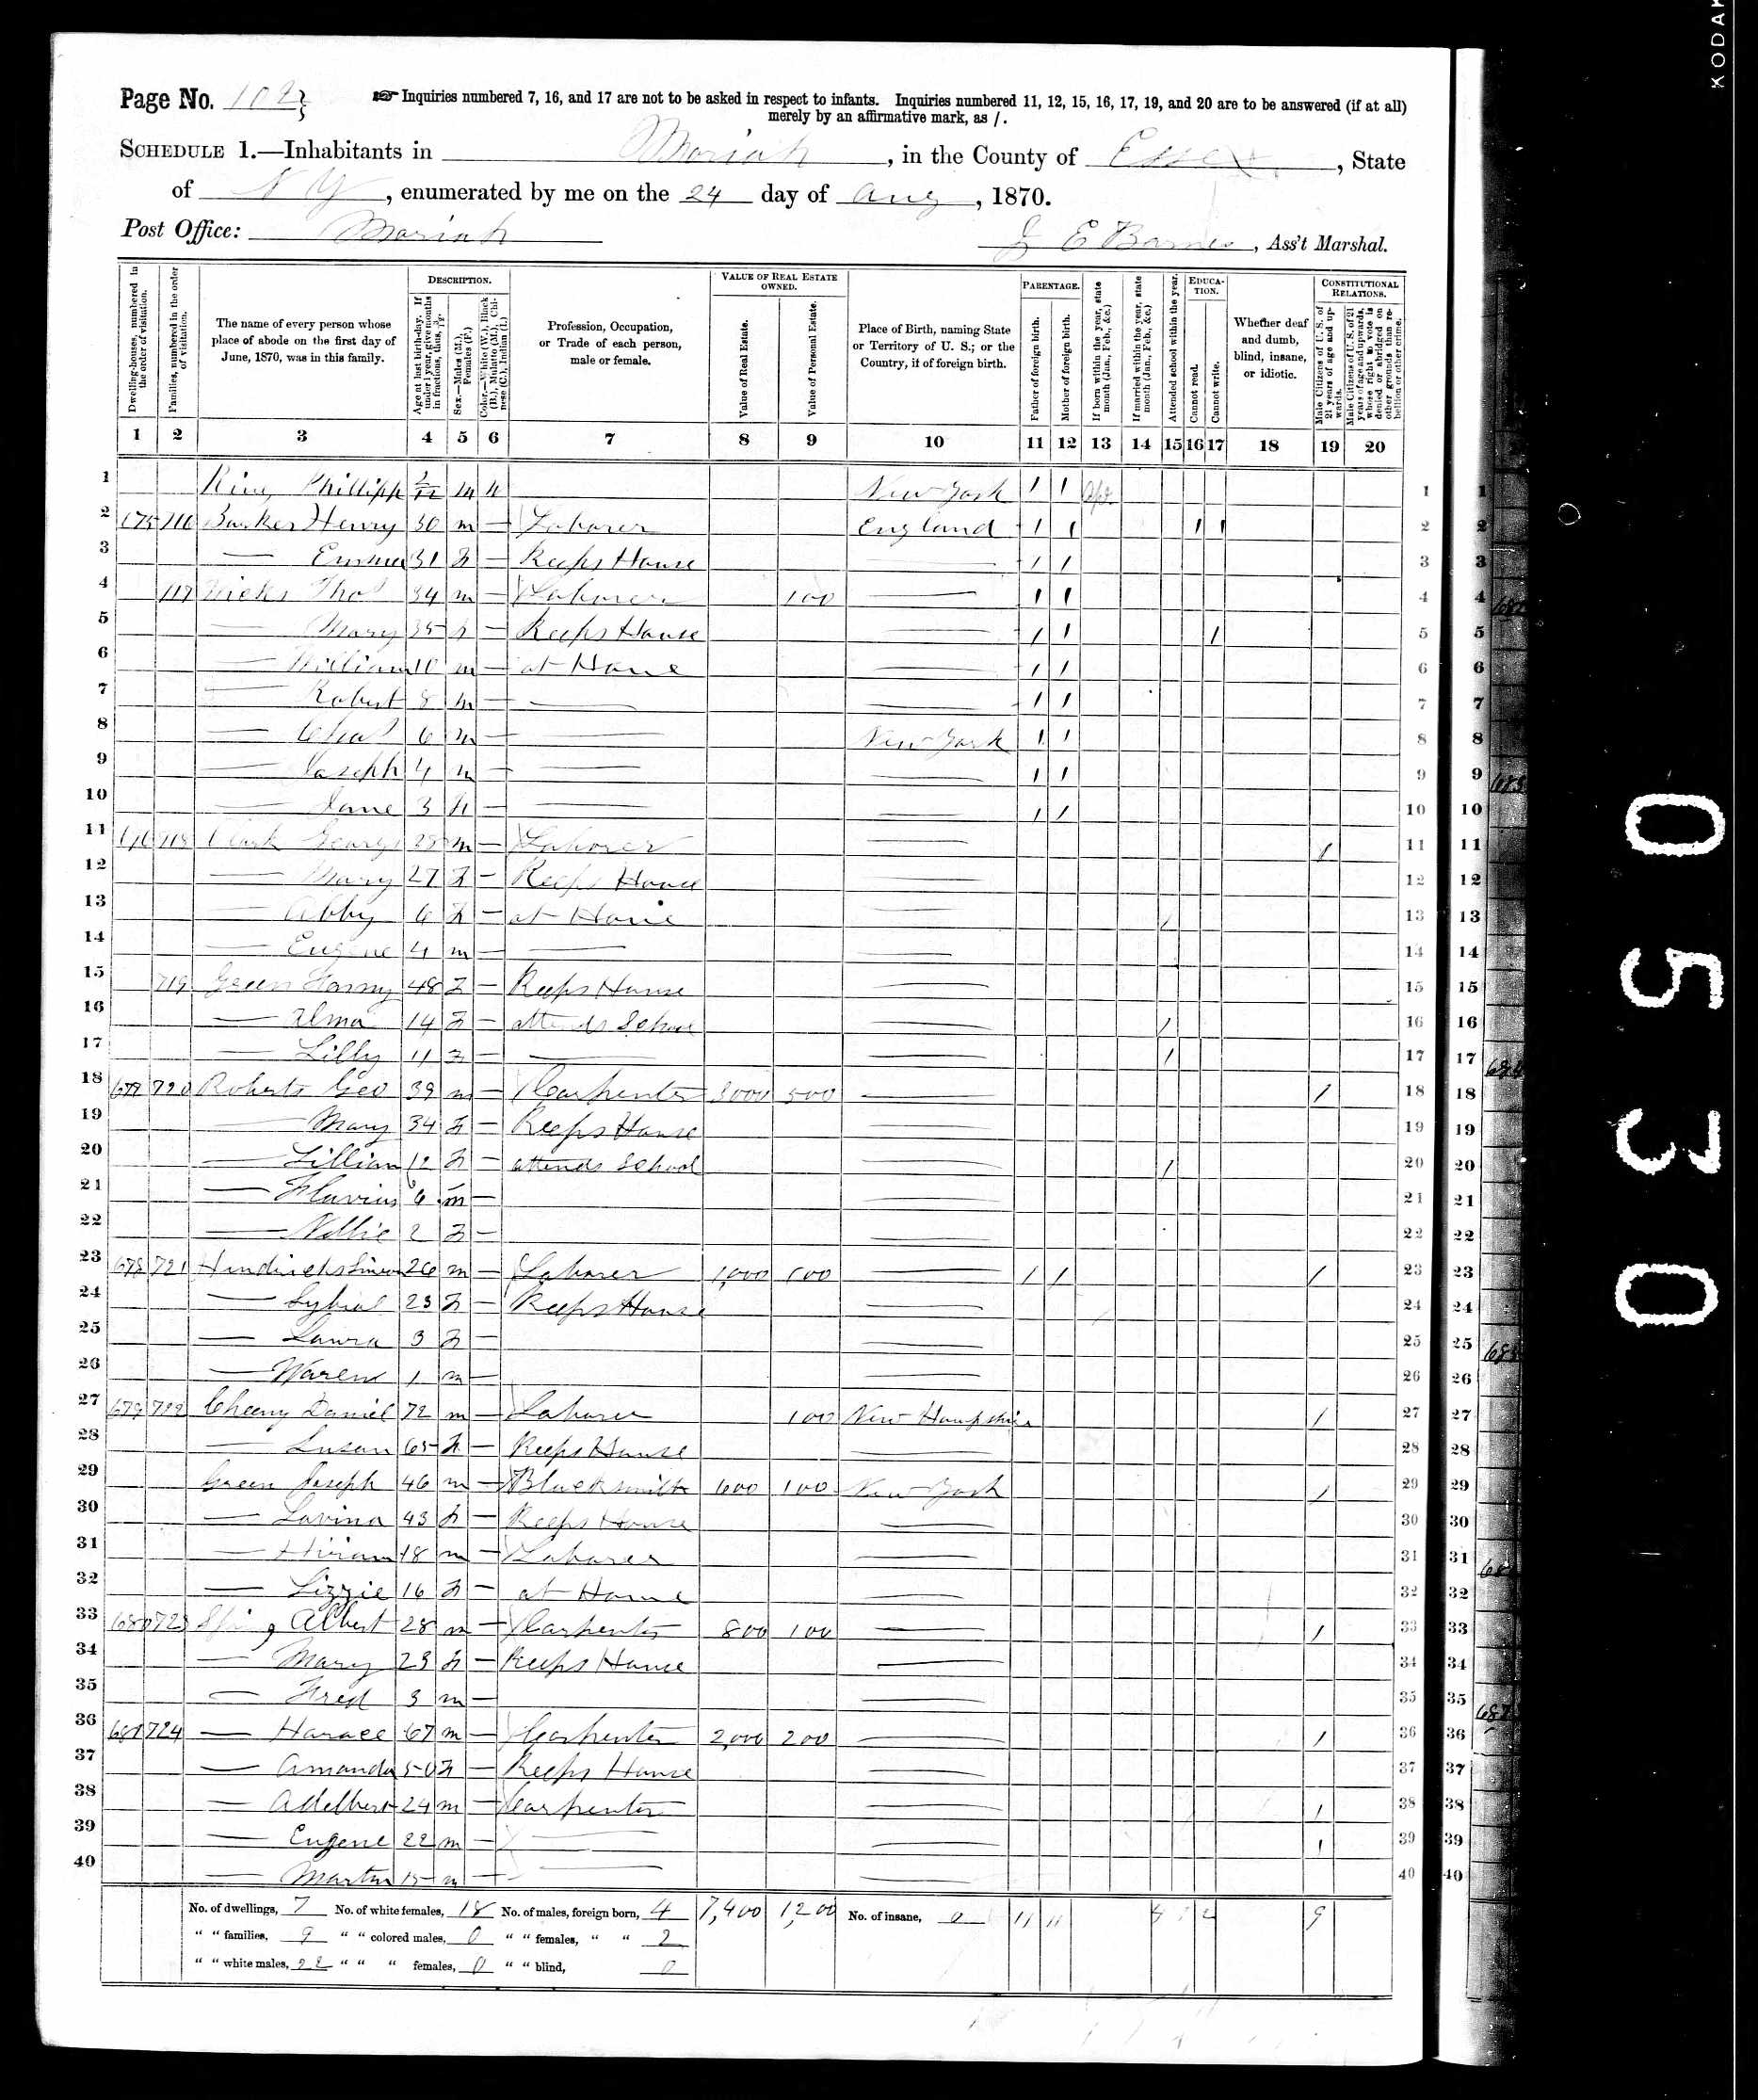 KODAK
Page No. 102
☞ Inquiries numbered 7, 16, and 17 are not to be asked in respect to infants. Inquiries numbered 11, 12, 15, 16, 17, 19, and 20 are to be answered (if at all)
merely by an affirmative mark, as /.
SCHEDULE 1.—Inhabitants in Moriah, in the County of Essex, State
of N Y, enumerated by me on the 24 day of Aug, 1870.
Post Office: Moriah
J E Barnes, Ass't Marshal.
DESCRIPTION. VALUE OF REAL ESTATE OWNED. PARENTAGE. EDUCATION. CONSTITUTIONAL RELATIONS.
Dwelling-houses, numbered in the order of visitation.
Families, numbered in the order of visitation.
The name of every person whose place of abode on the first day of June, 1870, was in this family.
Age at last birth-day. If under 1 year, give months in fractions, thus, 3/12.
Sex.—Males (M.), Females (F.)
Color.—White (W.), Black (B.), Mulatto (M.), Chinese (C.), Indian (I.)
Profession, Occupation, or Trade of each person, male or female.
Value of Real Estate.
Value of Personal Estate.
Place of Birth, naming State or Territory of U. S.; or the Country, if of foreign birth.
Father of foreign birth.
Mother of foreign birth.
If born within the year, state month (Jan., Feb., &c.)
If married within the year, state month (Jan., Feb., &c.)
Attended school within the year.
Cannot read.
Cannot write.
Whether deaf and dumb, blind, insane, or idiotic.
Male Citizens of U. S. of 21 years of age and upwards.
Male Citizens of U. S. of 21 years of age and upwards, whose right to vote is denied or abridged on other grounds than rebellion or other crime.
1 2 3 4 5 6 7 8 9 10 11 12 13 14 15 16 17 18 19 20
1 Phillipp New York / / 1
2 Henry 30 m — Laborer England / / / / 2
3 — Emma 31 F — Keeps House — / / 3
4 Thos 34 m — Laborer 100 — / / 4
5 — Mary 35 F — Keeps House — / / / 5
6 — William 10 m — at Home — / / 6
7 — Robert 8 m — — — / / 7
8 — Chas 6 m — — New York / / 8
9 — Joseph 4 m — — — / / 9
10 — Jane 3 F — — — / / 10
11 Clark George m — Laborer — / 11
12 — Mary 27 F — Keeps House — 12
13 — Abby 6 F — at Home — / 13
14 — Eugene 4 m — — — 14
15 719 Green Fanny 48 F — Keeps House — 15
16 — Alma 14 F — attends School — / 16
17 — Lilly 11 F — — — / 17
18 677 720 Roberts Geo 39 m — Carpenter 3000 500 — / 18
19 — Mary 34 F — Keeps House — 19
20 — Lillian 12 F — attends School — / 20
21 — Flavius 6 m — — 21
22 — Nellie 2 F — — 22
23 678 721 26 m — Laborer 1,000 — / / / 23
24 — 23 F — Keeps House — 24
25 — Laura 3 F — — 25
26 — Waren 1 m — — 26
27 679 722 Cheeny Daniel 72 m — Laborer 100 New Hampshire / 27
28 — Susan 65 F — Keeps House — 28
29 Green Joseph 46 m — Blacksmith 600 100 New York / 29
30 — Lavina 43 F — Keeps House — 30
31 — Hiram 18 m — Laborer — 31
32 — Lizzie 16 F — at Home — 32
33 680 723 Albert 28 m — Carpenter 800 100 — / 33
34 — Mary 23 F — Keeps House — 34
35 — Fred 3 m — — 35
36 681 724 — Horace 67 m — Carpenter 2,000 200 — / 36
37 — Amanda 50 F — Keeps House — 37
38 — Adelbert 24 m — Carpenter — / 38
39 — Eugene 22 m — — — / 39
40 — Martin 15 m — — — 40
No. of dwellings, 7 No. of white females, 18 No. of males, foreign born, 4 7,400 1,200 No. of insane, 0 11 11 9
" " families, 9 " " colored males, 0 " " females, " " 2
" " white males, 22 " " " females, 0 " " blind, 0
0530